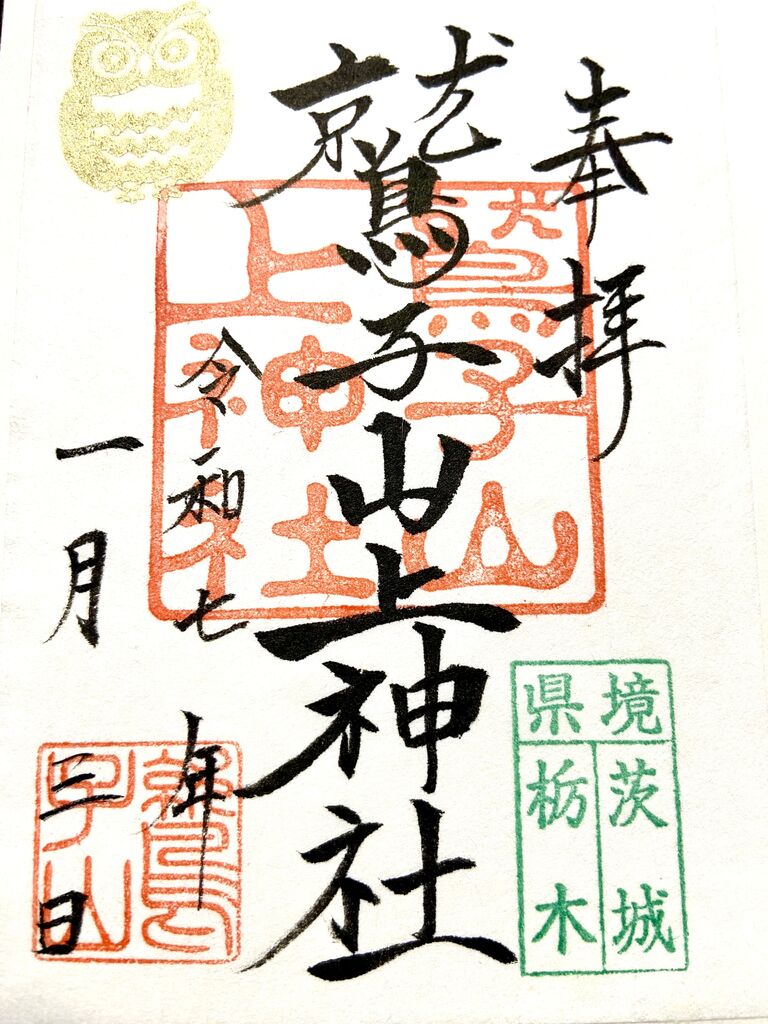 奉拝
鷲子山上神社
令和七年
一月三日
鷲子山
上神社
県境
茨城
栃木
鷲
子山